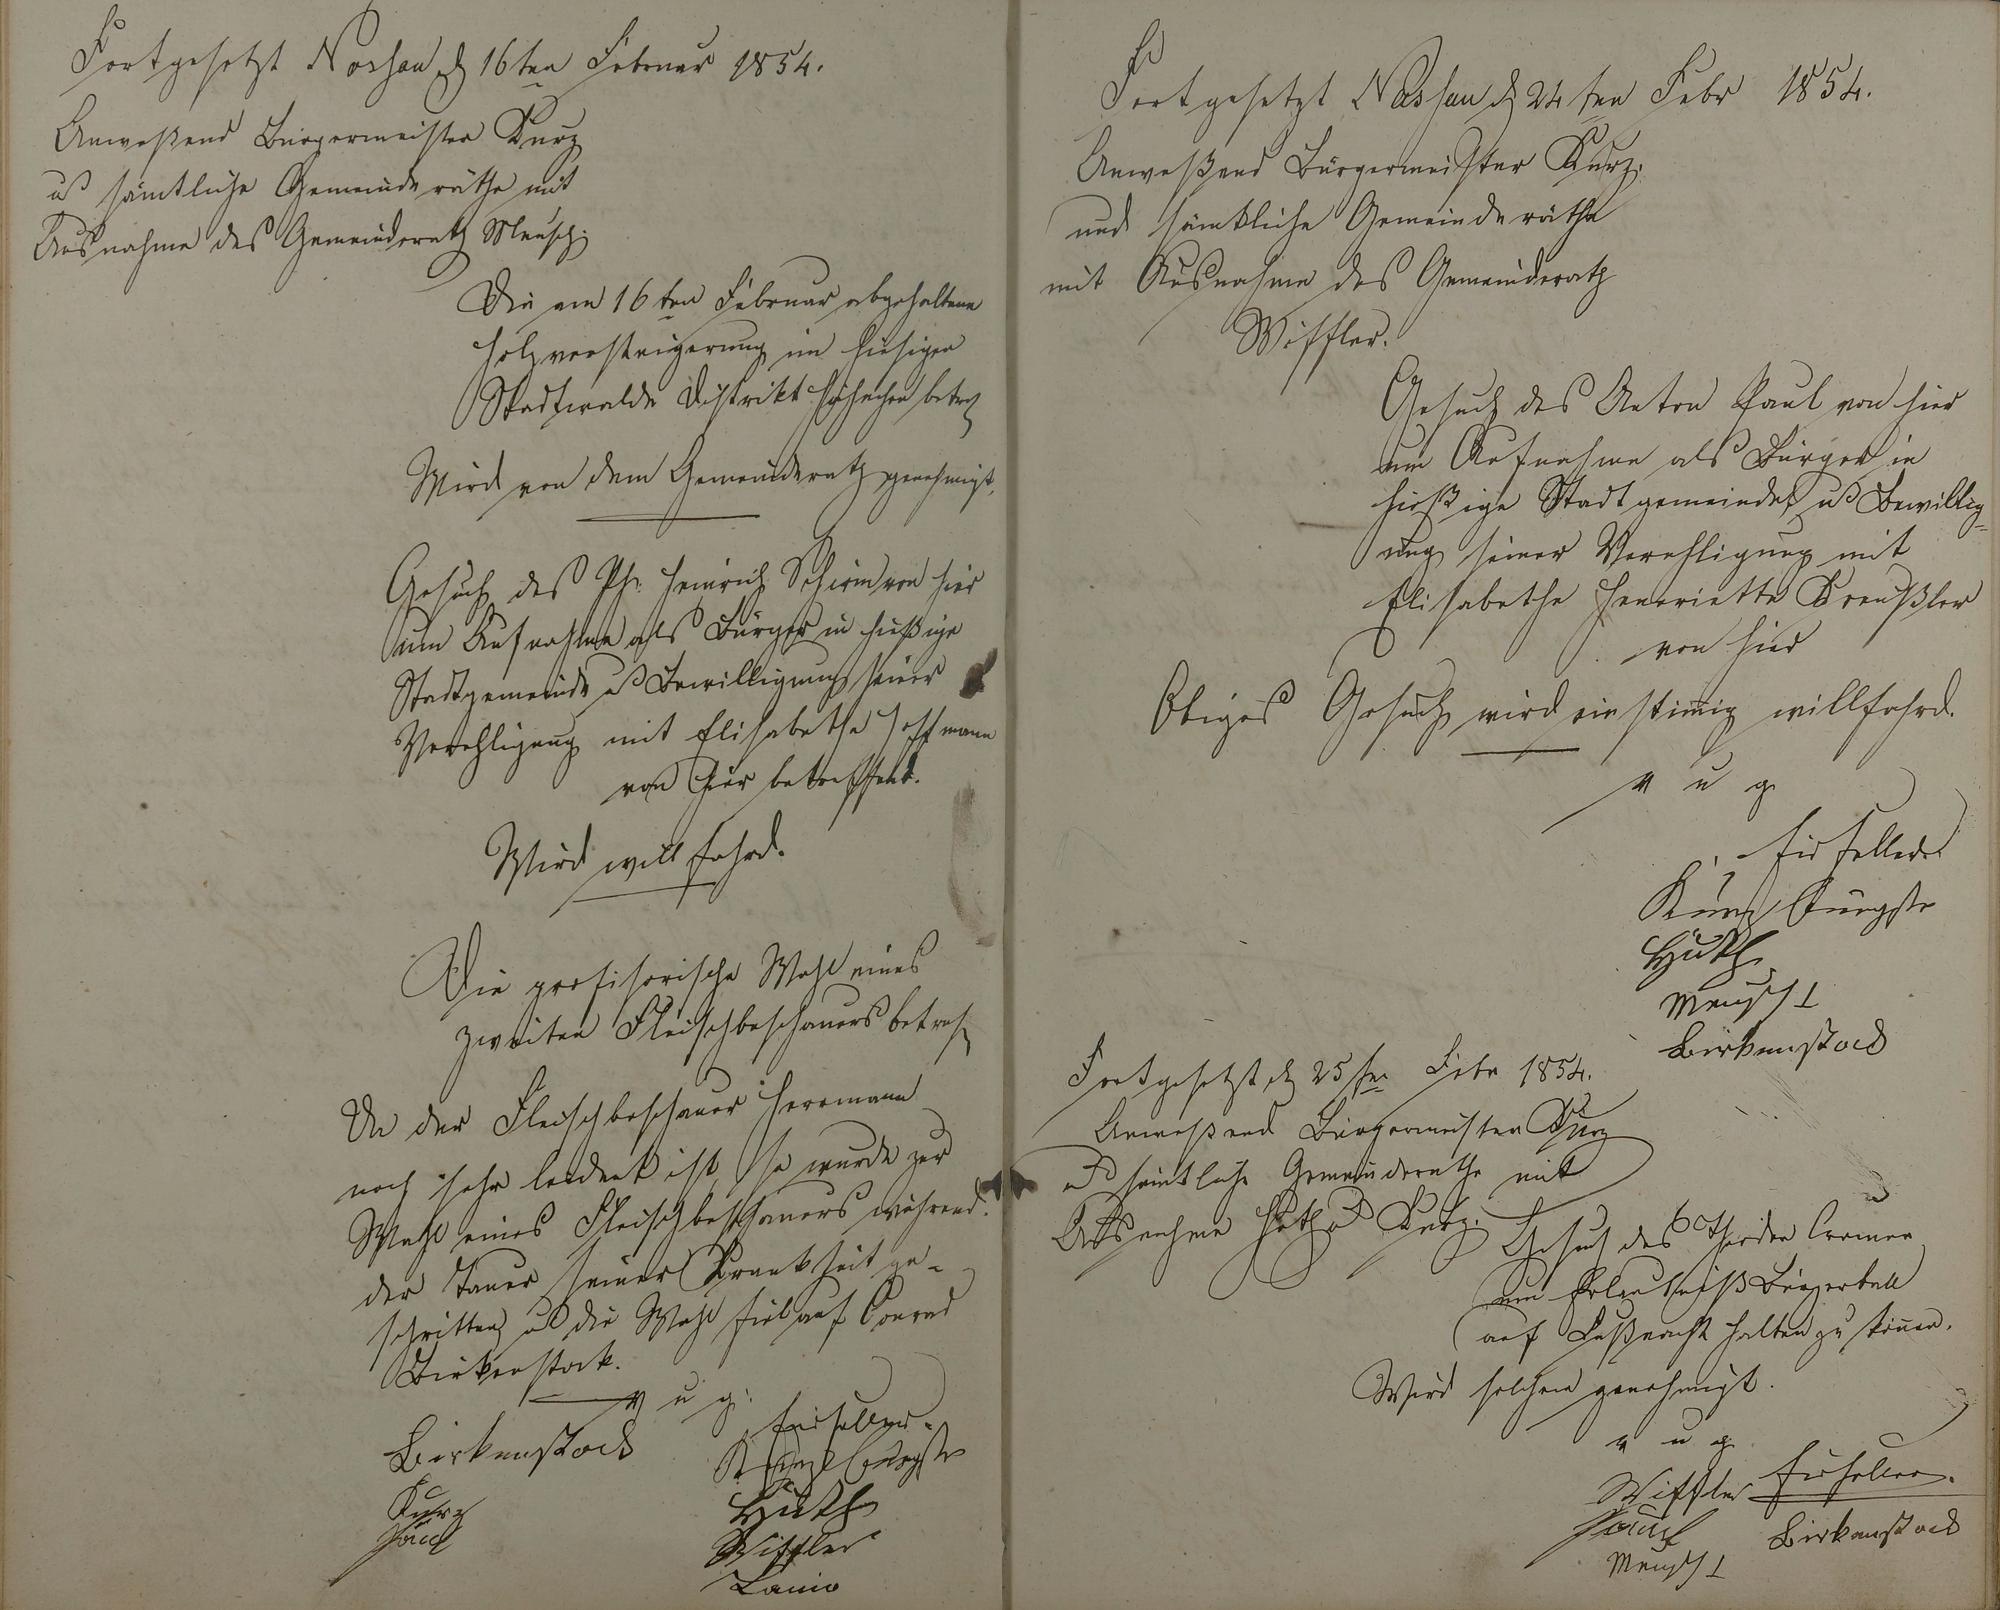 Fortgesetzt Nassau d 16ten Februar 1854.
Anweßend Bürgermeister Kurz
u sämtliche Gemeinderäthe mit
Ausnahme des Gemeinderath Meusch.
Die am 16ten Februar abgehaltene
Holzversteigerung im hiesigen
Stadtwalde Distrikt betref
Wird von dem Gemeinderath genehmigt.
Gesuch des Ph. Heinrich Schirm von hier
um Aufnahme als Bürger in hießige
Stadtgemeinde u Bewilligung seiner
Verehligung mit Elisabetha Hoffmann
von hier betreffend.
Wird willfahrd.
Die profisorische Wahl eines
zweiten Fleischbeschauers betref
Da der Fleischbeschauer Herrmann
noch sehr leidend ist, so wurde zur
Wahl eines Fleischbeschauers während
der Dauer seiner Krankheit ge-
schritten u die Wahl fiel auf Conrad
Birkenstock.
v u g.
Birkenstock
Kurz
Paul
Kurz Burgstr
Huth
Wiffler
Lanio
Fortgesetzt Nassau d 24ten Febr 1854.
Anweßend Bürgermeister Kurz.
und sämtliche Gemeinderäthe
mit Ausnahme des Gemeinderath
Wiffler.
Gesuch des Anton Paul von hier
um Aufnahme als Bürger in
hießige Stadtgemeinde u Bewillig-
ung seiner Verehligung mit
Elisabetha Henriette Kreußler
von hier
Obiges Gesuch wird einstimig willfahrd.
v u g
Kurz Burgstr
Huth
Meusch
Birkenstock
Fortgesetzt d 25ten Febr 1854.
Anweßend Bürgermeister Kurz
u sämtliche Gemeinderäthe mit
Ausnahme Huth u Kurz.
Gesuch des Cramer
um Erlaubniß Bürgerball
auf Faßnacht halten zu können.
Wird solchem genehmigt.
v u g
Wiffler
Paul
Meusch
Birkenstock